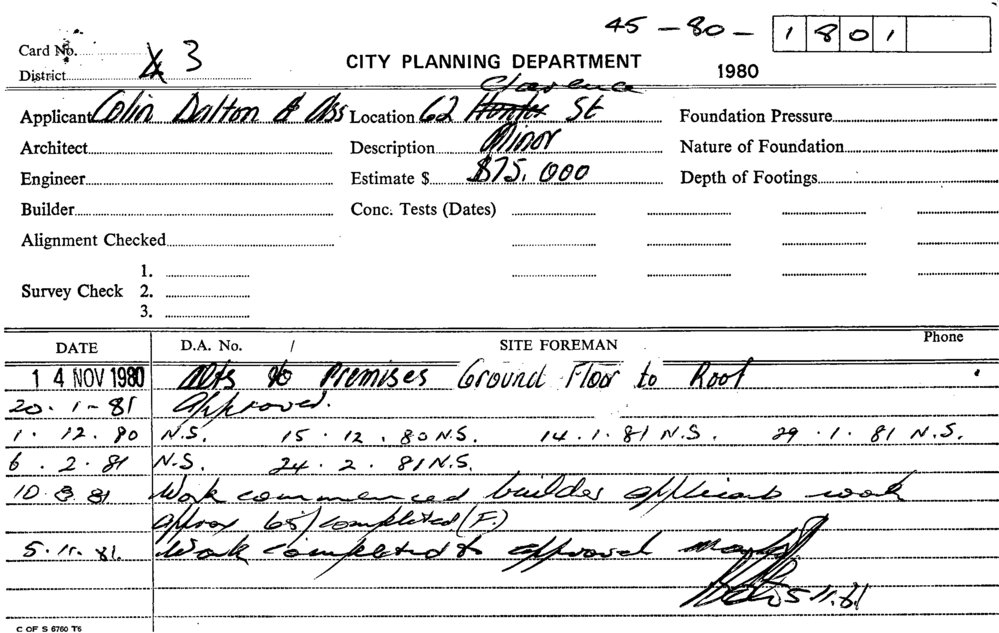 45 - 80 - 1801
Card No.
District 3
CITY PLANNING DEPARTMENT
1980
Clarence
Applicant Colin Dalton & Ass Location 62 Hunter St Foundation Pressure
Architect Description Minor Nature of Foundation
Engineer Estimate $ $75,000 Depth of Footings
Builder Conc. Tests (Dates)
Alignment Checked
1.
Survey Check 2.
3.
DATE D.A. No. / SITE FOREMAN Phone
14 NOV 1980 Alts to Premises Ground Floor to Roof
20.1-81 Approved.
1.12.80 N.S. 15.12.80 N.S. 14.1.81 N.S. 29.1.81 N.S.
6.2.81 N.S. 24.2.81 N.S.
10.8.81 Work commenced builder applicant work
approx 65% completed (F.)
5.11.81. Work completed to approval
5.11.81
C OF S 6760 T6